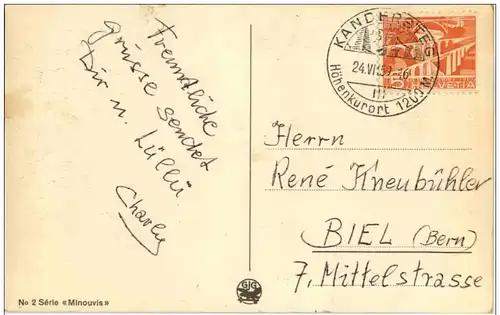 Freundliche
grüsse sendet
Dir u. Lülli
Charly
KANDERSTEG
24.VII.50.-16
Höhenkurort 1200 M.
5
HELVETIA
Herrn
René Kneubühler
BIEL (Bern)
7, Mittelstrasse
GJG
No 2 Série «Minouvis»